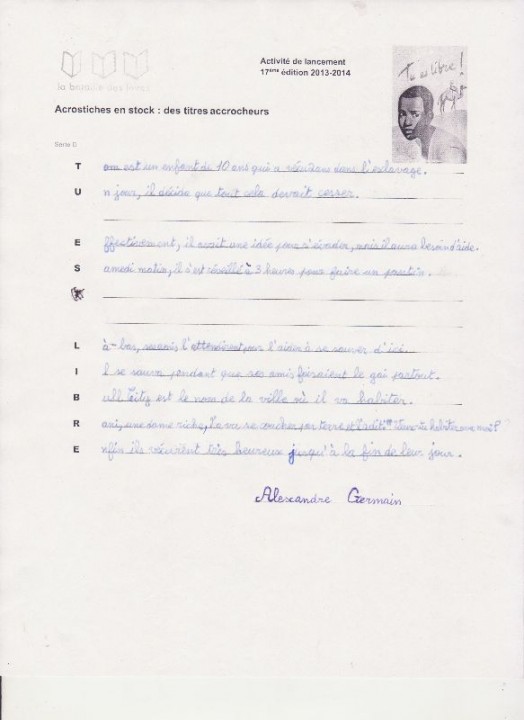 la bataille des livres
Activité de lancement
17ème édition 2013-2014
Tu es libre !
Acrostiches en stock : des titres accrocheurs
Série
T om est un enfant de 10 ans qui a vécu dans l'esclavage.
U n jour, il décide que tout cela devait cesser.
E ffectivement, il avait une idée pour s'évader, mais il aura besoin d'aide.
S amedi matin, il s'est réveillé à 3 heures pour faire un
L à-bas, l'attendirent pour l'aider à se sauver d'ici.
I l se sauva pendant que ses amis faisaient le gai partout.
B ull City est le nom de la ville où il va habiter.
R ani, une dame riche, va se coucher par terre et habiter avec moi ?
E nfin ils vécurent très heureux jusqu'à la fin de leur jour.
Alexandre Germain